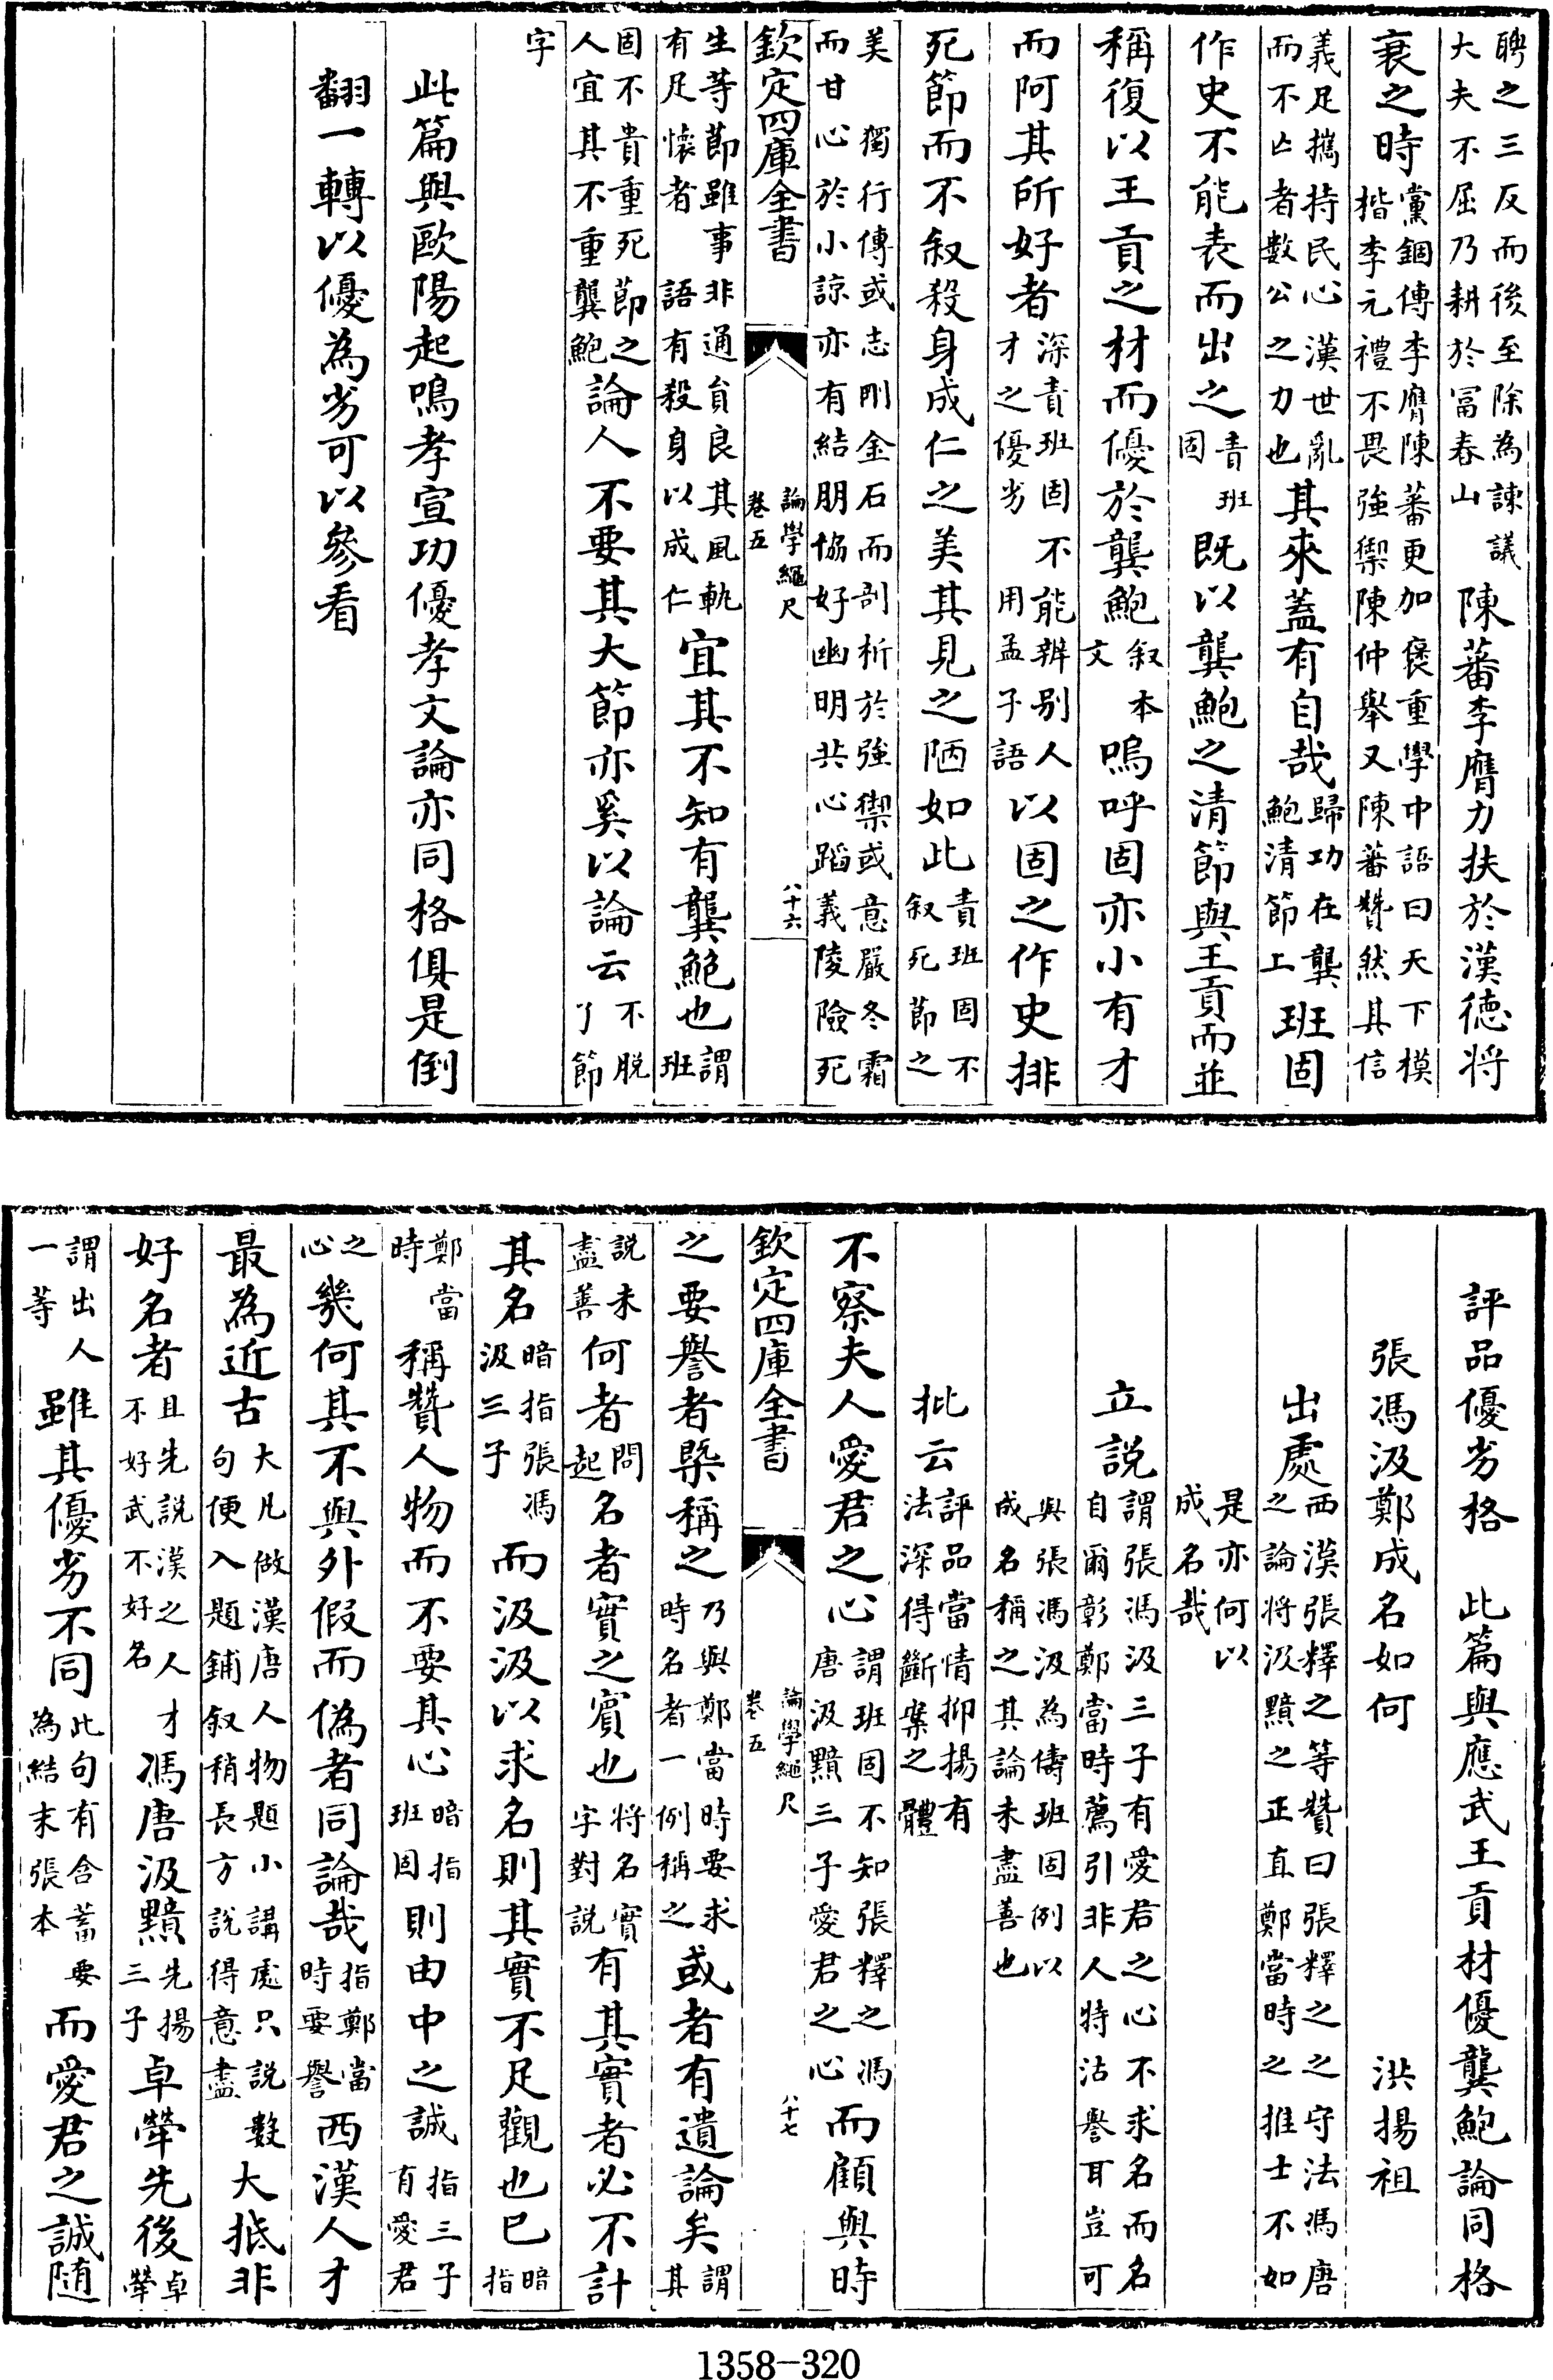 聘之三反而後至除為諫議大夫不屈乃耕於冨春山陳蕃李膺力扶於漢徳将
衰之時黨錮傳李膺陳蕃更加褒重學中語曰天下模楷李元禮不畏強禦陳仲舉又陳蕃贊然其信
義足攜持民心漢世亂而不亡者數公之力也其來蓋有自哉歸功在龔鮑清節上班固
作史不能表而出之責班固既以龔鮑之清節與王貢而並
稱復以王貢之材而優於龔鮑叙本文嗚呼固亦小有才
而阿其所好者深責班固才之優劣不能辨别人用孟子語以固之作史排
死節而不叙殺身成仁之美其見之陋如此責班固不叙死節之
美獨行傳或志剛金石而剖析於強禦或意嚴冬霜而甘心於小諒亦有結朋恊好幽明共心蹈義陵險死
欽定四庫全書 論學繩尺 卷五 八十六
生等節雖事非通貟良其風軌有足懷者語有殺身以成仁宜其不知有龔鮑也謂班
固不貴重死節之人宜其不重龔鮑論人不要其大節亦奚以論云不脱了節
字
此篇與歐陽起鳴孝宣功優孝文論亦同格俱是倒
翻一轉以優為劣可以參看
評品優劣格 此篇與應武王貢材優龔鮑論同格
張馮汲鄭成名如何 洪揚祖
出處西漢張釋之等贊曰張釋之之守法馮唐之論将汲黯之正直鄭當時之推士不如
是亦何以成名哉
立説謂張馮汲三子有愛君之心不求名而名自爾彰鄭當時薦引非人特沽譽耳豈可
與張馮汲為儔班固例以成名稱之其論未盡善也
批云評品當情抑揚有法深得斷案之體
不察夫人愛君之心謂班固不知張釋之馮唐汲黯三子愛君之心而顧與時
欽定四庫全書 論學繩尺 卷五 八十七
之要譽者槩稱之乃與鄭當時要求時名者一例稱之或者有遺論矣謂其
説未盡善何者問起名者實之賓也将名實字對説有其實者必不計
其名暗指張馮汲三子而汲汲以求名則其實不足觀也已暗指
鄭當時稱贊人物而不要其心暗指班固則由中之誠指三子有愛君
之心幾何其不與外假而偽者同論哉指鄭當時要譽西漢人才
最為近古大凡做漢唐人物題小講處只説數句便入題鋪叙稍長方說得意盡大抵非
好名者且先説漢之人才不好武不好名馮唐汲黯先揚三子卓犖先後卓犖
謂出人一等雖其優劣不同此句有含蓄要為結末張本而愛君之誠随
1358-320